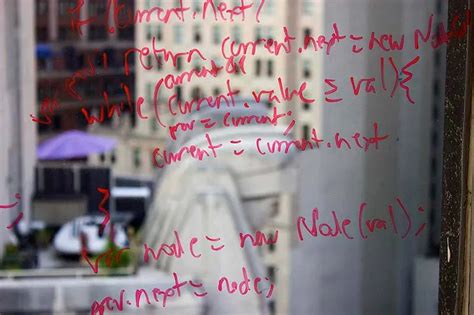 if (current.next)
return current.next = new Node(
current &&
while (current.value ≤ val) {
prev = current;
current = current.next
}
var node = new Node(val);
prev.next = node;